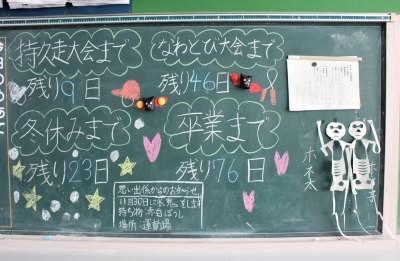 持久走大会まで
残り9日
なわとび大会まで
残り46日
冬休みまで
残り23日
卒業まで
残り76日
思い出係からのお知らせ
11月30日に氷鬼をします
持ち物 赤白ぼうし
場所 運動場
ホネ太